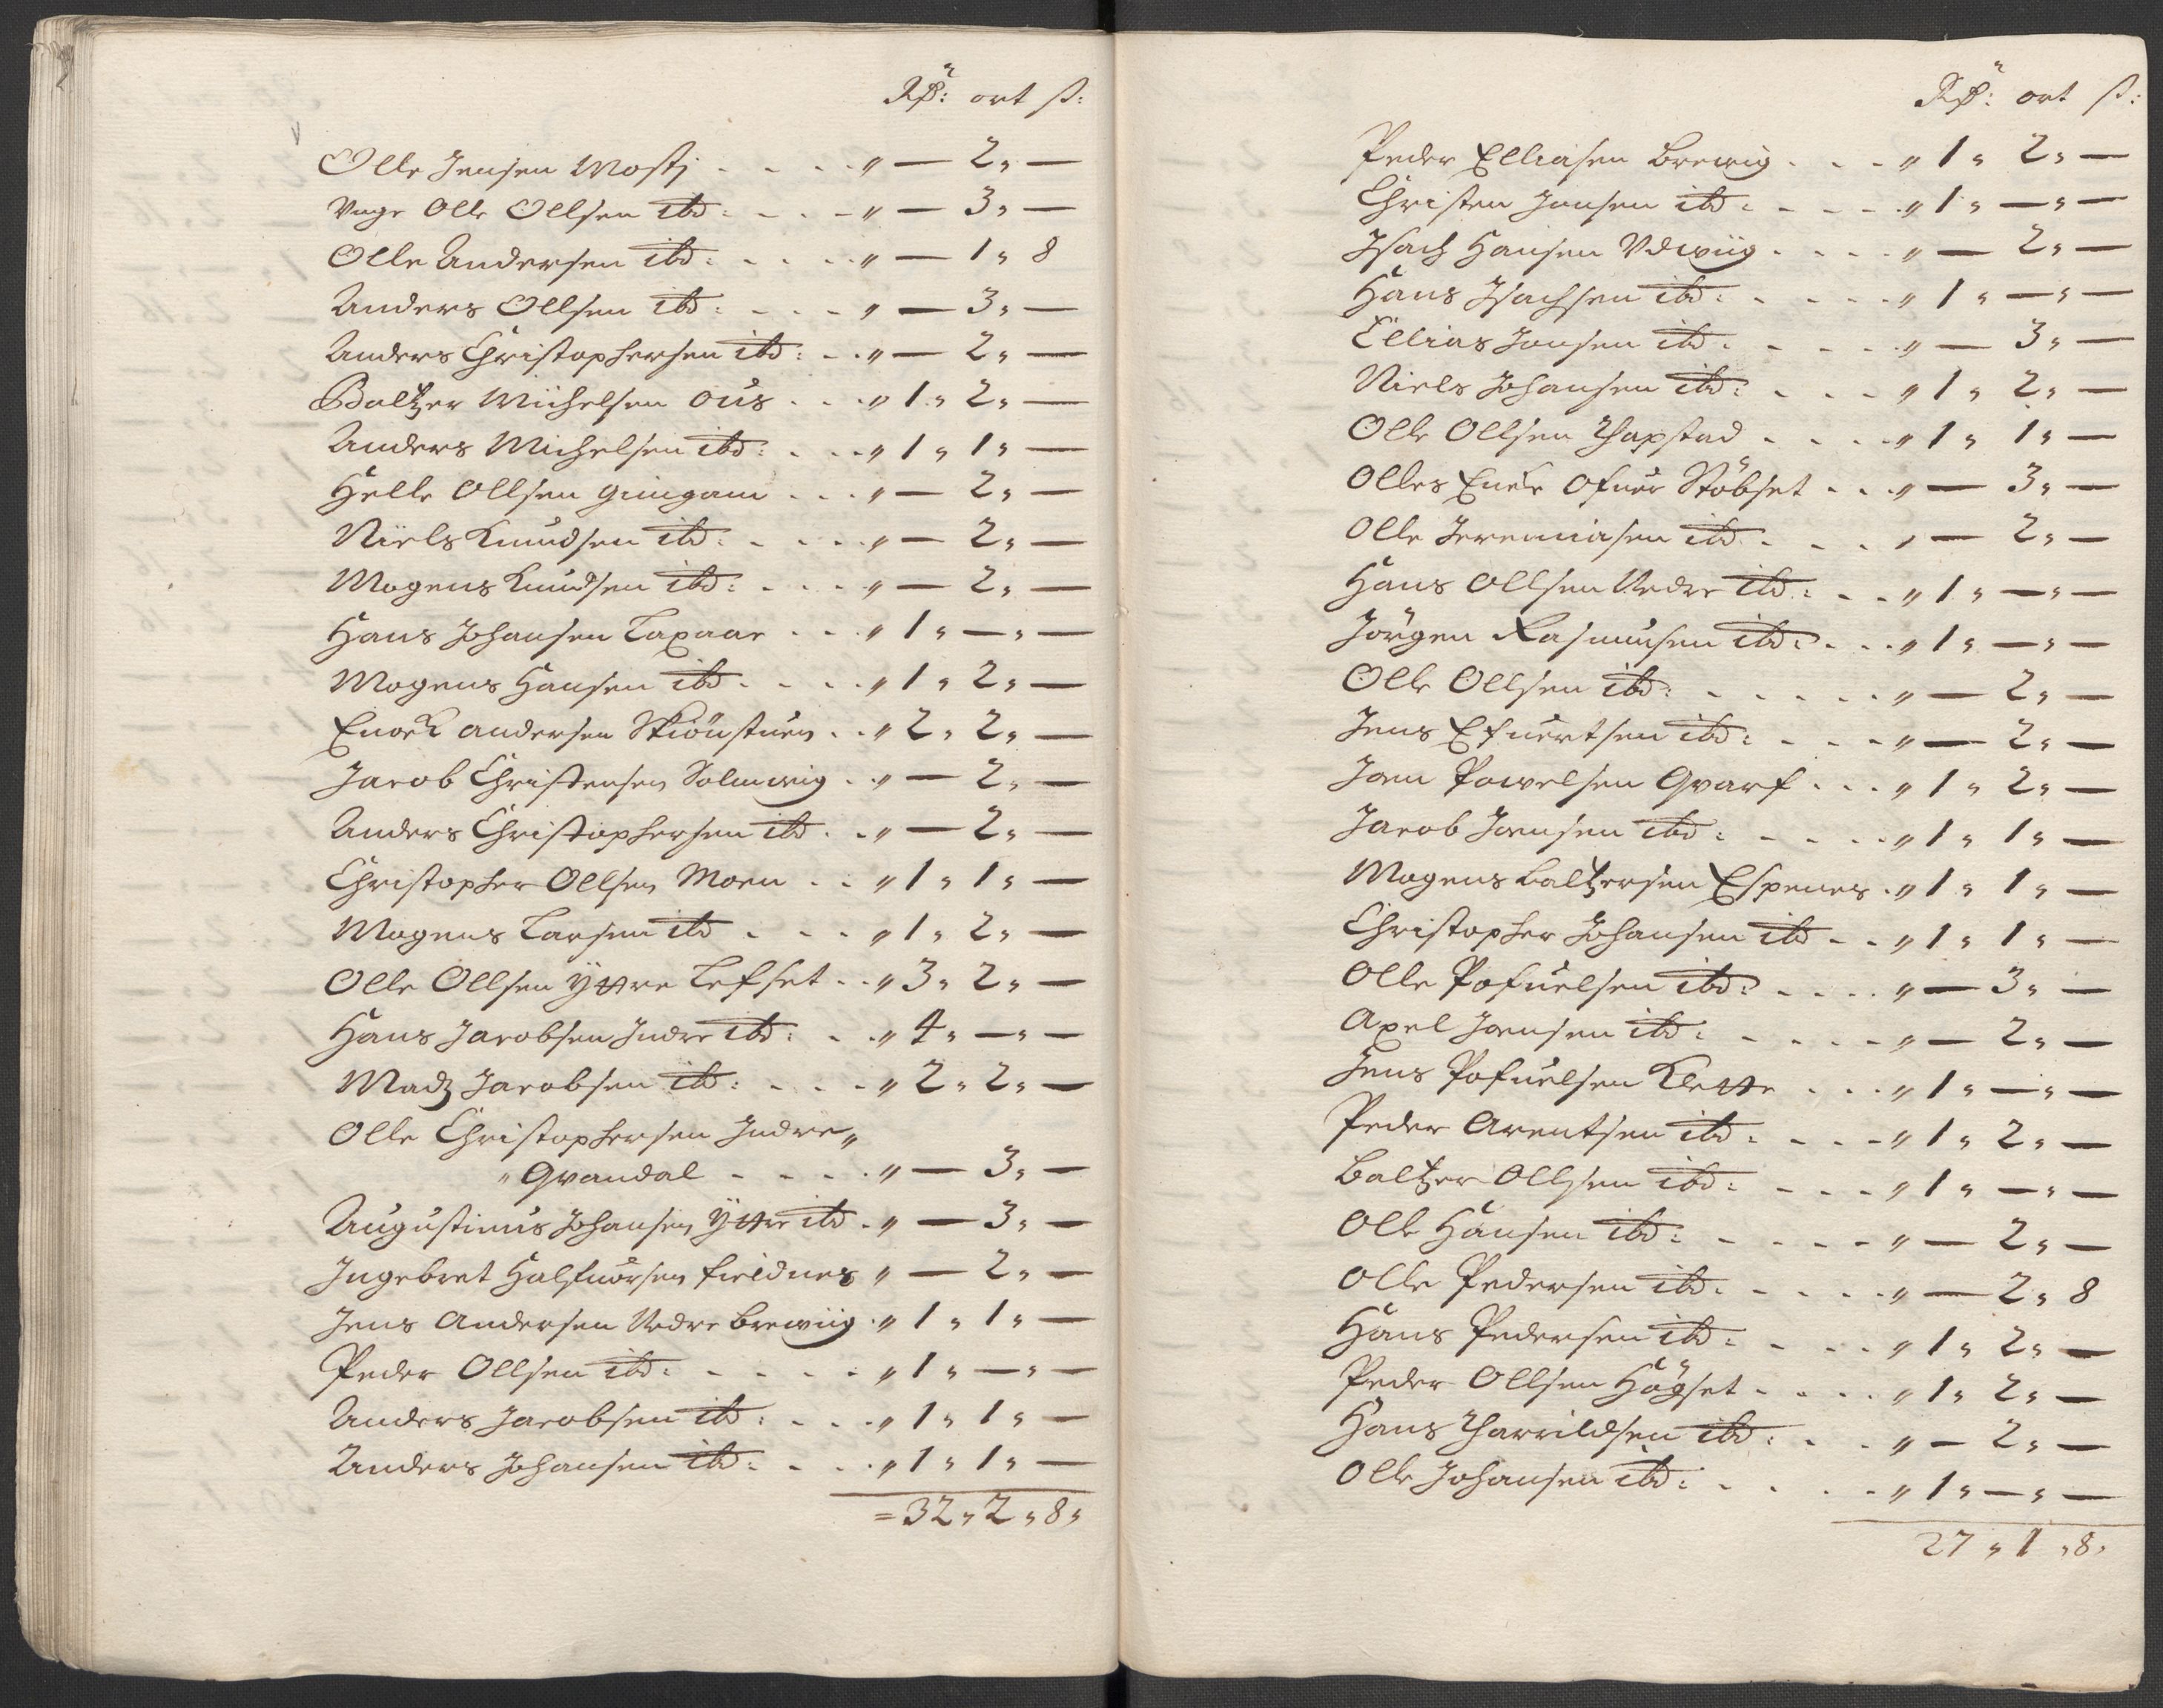 Rdr: ort ß:
Olle Jensen Mostj - - - - „ — 2 „ —
Unge Olle Ollsen ibd: - - - „ — 3 „ —
Olle Andersen ibd: - - - - „ — 1 „ 8
Anders Ollsen ibd: - - - „ — 3 „ —
Anders Christophersen ibd: - - „ — 2 „ —
Baltzer Michelsen Ous - - - „ 1 „ 2 „ —
Anders Michelsen ibd: - - - „ 1 „ 1 „ —
Helle Ollsen Gimgam - - - „ — 2 „ —
Niels Knudsen ibd: - - - - „ — 2 „ —
Mogens Knudsen ibd: - - - „ — 2 „ —
Hans Johansen Laxaae - - - „ 1 „ — „ —
Mogens Hansen ibd - - - - „ 1 „ 2 „ —
Enock Andersen Skiönstuen - - „ 2 „ 2 „ —
Jacob Christensen Solmwig - - „ — 2 „ —
Anders Christophersen ibd - - „ — 2 „ —
Christopher Ollsen Moen - - „ 1 „ 1 „ —
Mogens Larsen ibd - - - „ 1 „ 2 „ —
Olle Ollsen Yttre Lefset - - „ 3 „ 2 „ —
Hans Jacobsen Indre ibd: - - „ 4 „ — „ —
Madz Jacobsen ibd: - - - „ 2 „ 2 „ —
Olle Christophersen Indre „
„ Qvandal - - - - „ — 3 „ —
Augustinus Johansen Yttre ibd - „ — 3 „ —
Ingebret Halfuorsen Fieldnes „ — 2 „ —
Jens Andersen Nedre Brewiig - „ 1 „ 1 „ —
Peder Ollsen ibd: - - - - - „ 1 „ — „ —
Anders Jacobsen ibd: - - - „ 1 „ 1 „ —
Anders Johansen ibd: - - - „ 1 „ 1 „ —
= 32 „ 2 „ 8 „
Rdr: ort ß:
Peder Elliasen Brewig - - - „ 1 „ 2 „ —
Christen Jonsen ibd: - - - - „ 1 „ — „ —
Isach Hansen Udwiig - - - - „ — 2 „ —
Hans Isachsen ibd: - - - - „ 1 „ — „ —
Ellias Jonsen ibd: - - - - „ — 3 „ —
Niels Johansen ibd: - - - „ 1 „ 2 „ —
Olle Ollsen Thapstad - - - - „ 1 „ 1 „ —
Olles Encke Ofuer Stöbset - - „ — 3 „ —
Olle Jeremiasen ibd - - - „ — 2 „ —
Hans Ollsen Nedre ibd: - - „ 1 „ — „ —
Jörgen Rasmusen ibd: - - - „ 1 „ — „ —
Olle Ollsen ibd: - - - - - „ — 2 „ —
Jens Efuertsen ibd: - - - „ — 2 „ —
Joen Powelsen Qvarf - - - „ 1 „ 2 „ —
Jacob Joensen ibd: - - - - „ 1 „ 1 „ —
Mogens Baltzersen Espenes - „ 1 „ 1 „ —
Christopher Johansen ibd - - „ 1 „ 1 „ —
Olle Pofuelsen ibd: - - - - „ — 3 „ —
Axel Joensen ibd: - - - - „ — 2 „ —
Jens Pofuelsen Klette - - - „ 1 „ — „ —
Peder Arentsen ibd: - - - „ 1 „ 2 „ —
Baltzer Ollsen ibd: - - - „ 1 „ — „ —
Olle Hansen ibd: - - - - „ — 2 „ —
Olle Pedersen ibd: - - - - „ — 2 „ 8
Hans Pedersen ibd: - - - „ 1 „ 2 „ —
Peder Ollsen Högset - - - - „ 1 „ 2 „ —
Hans Tharrildsen ibd: - - „ — 2 „ —
Olle Johansen ibd: - - - - „ 1 „ — „ —
27 „ 1 „ 8 „